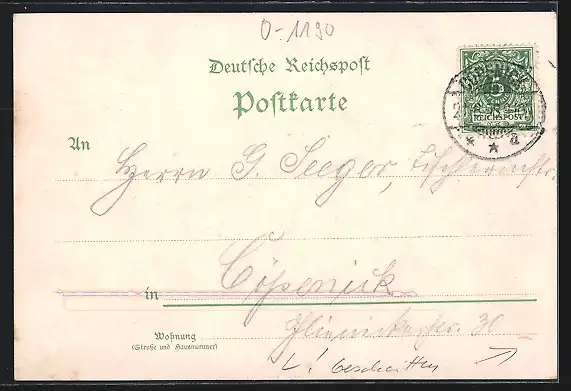 O-1190
Deutsche Reichspost
Postkarte
CÖPENICK
REICHSPOST
* * a
An
Herrn G. Seeger,
in Cöpenick
Wohnung
(Straße und Hausnummer)
30
L! beschnitten